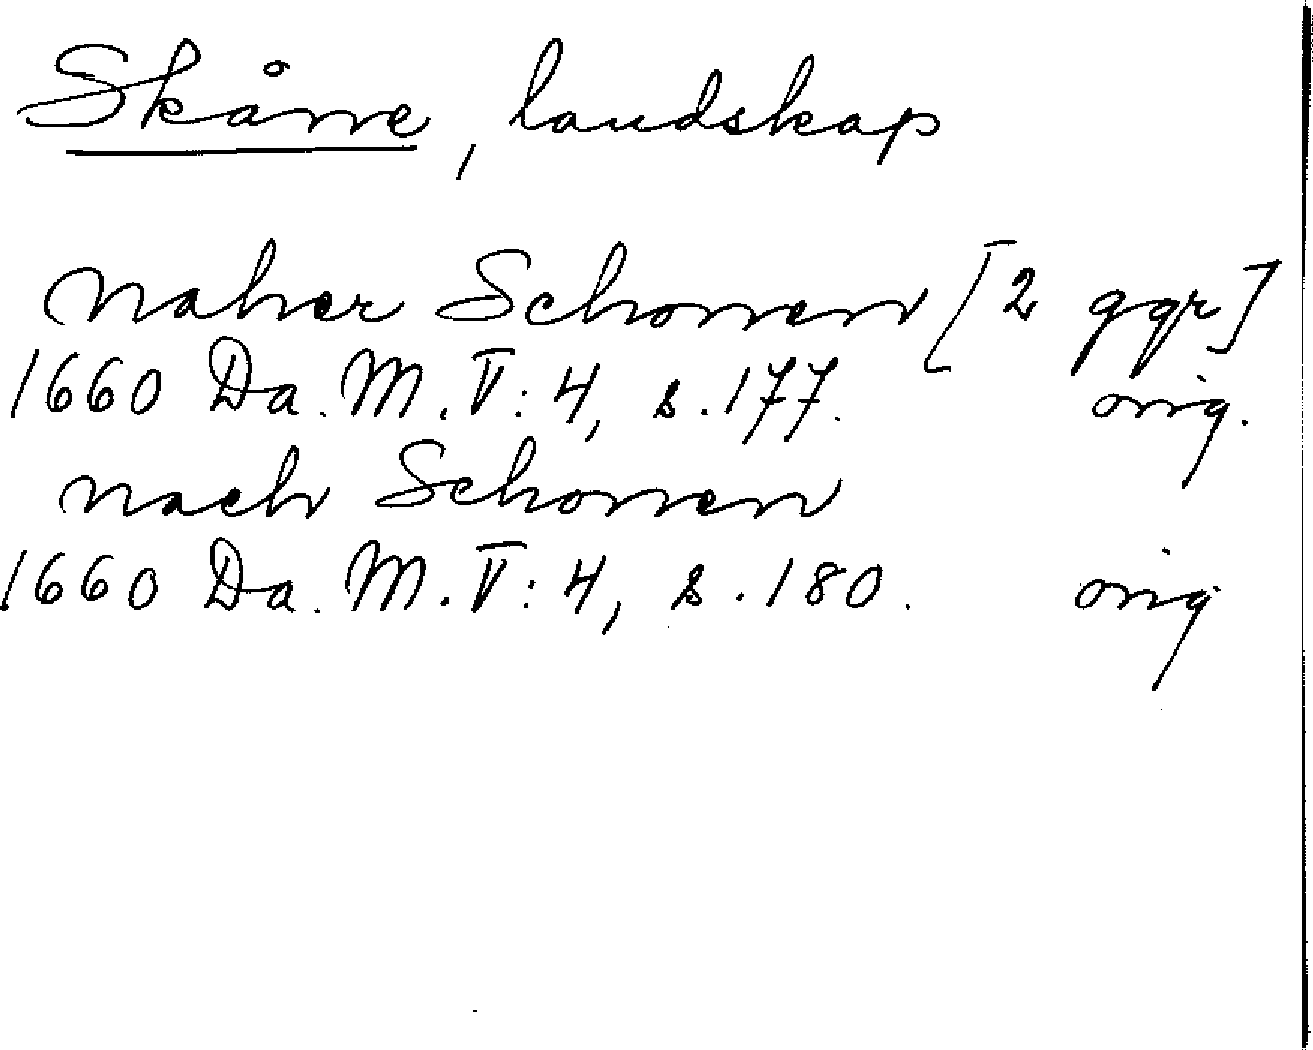 Skåne, landskap
naher Schonen [2 ggr]
1660 Da. M. V: 4, s. 177. orig.
nach Schonen
1660 Da. M. V: 4, s. 180. orig